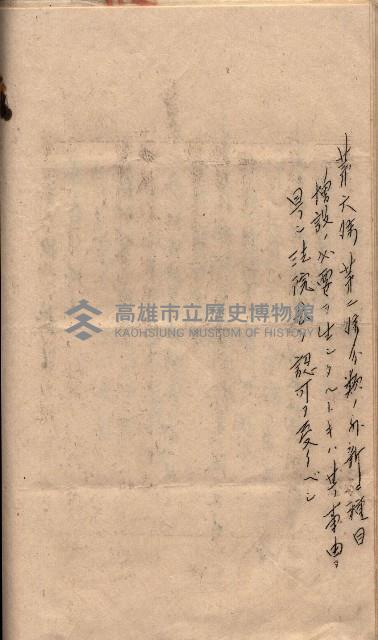 第六條 第二條分類ノ外新ニ種目
増設ノ必要ヲ生シタルトキハ其事由ヲ
具シ法院長ノ認可ヲ受クベシ
高雄市立歷史博物館
KAOHSIUNG MUSEUM OF HISTORY